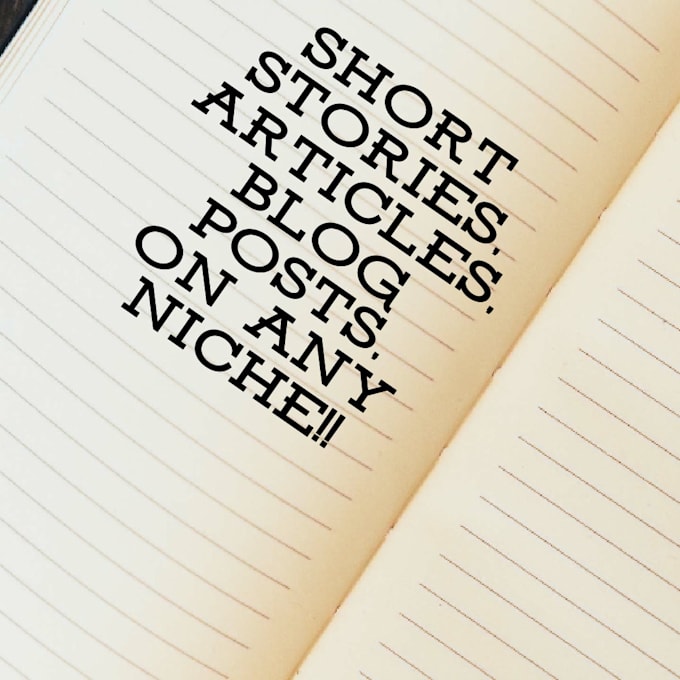 SHORT
STORIES,
ARTICLES,
BLOG
POSTS,
ON ANY
NICHE!!